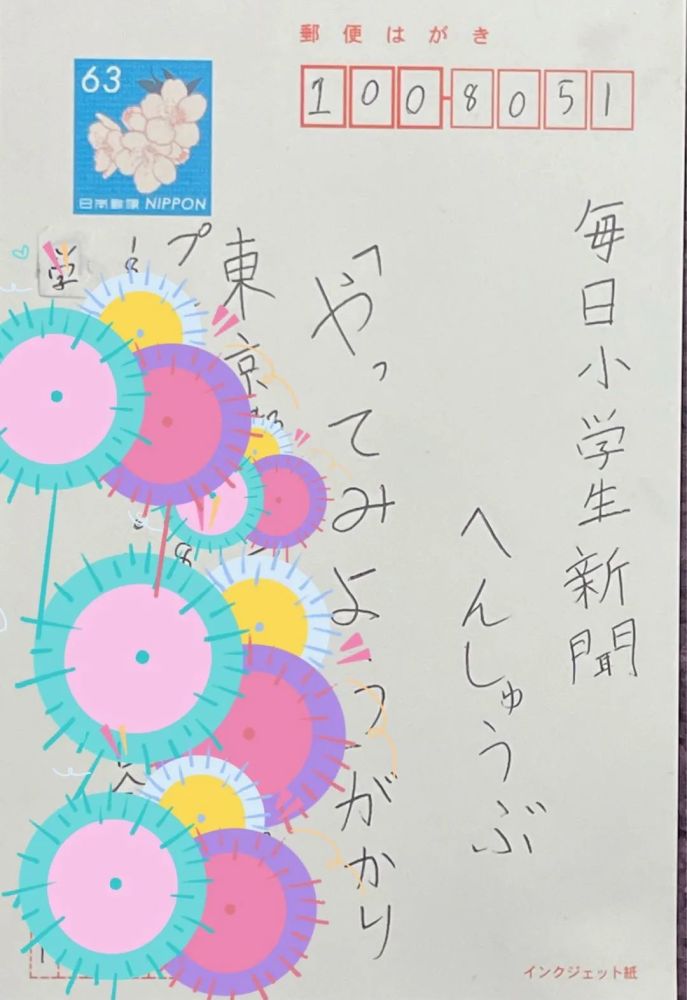 郵便はがき
63
日本郵便 NIPPON
100-8051
毎日小学生新聞
へんしゅうぶ
「やってみよう」がかり
東京
プ
学
インクジェット紙